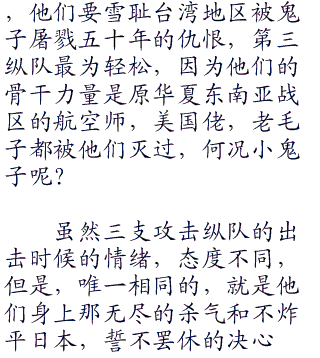 ，他们要雪耻台湾地区被鬼
子屠戮五十年的仇恨，第三
纵队最为轻松，因为他们的
骨干力量是原华夏东南亚战
区的航空师，美国佬，老毛
子都被他们灭过，何况小鬼
子呢？
虽然三支攻击纵队的出
击时候的情绪，态度不同，
但是，唯一相同的，就是他
们身上那无尽的杀气和不炸
平日本，誓不罢休的决心